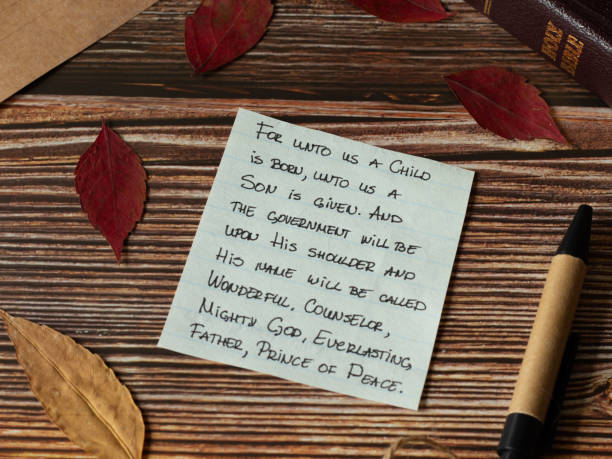 HOLY BIBLE
For unto us a Child
is born, unto us a
Son is given. And
the government will be
upon His shoulder and
His name will be called
Wonderful, Counselor,
Mighty God, Everlasting,
Father, Prince of Peace.